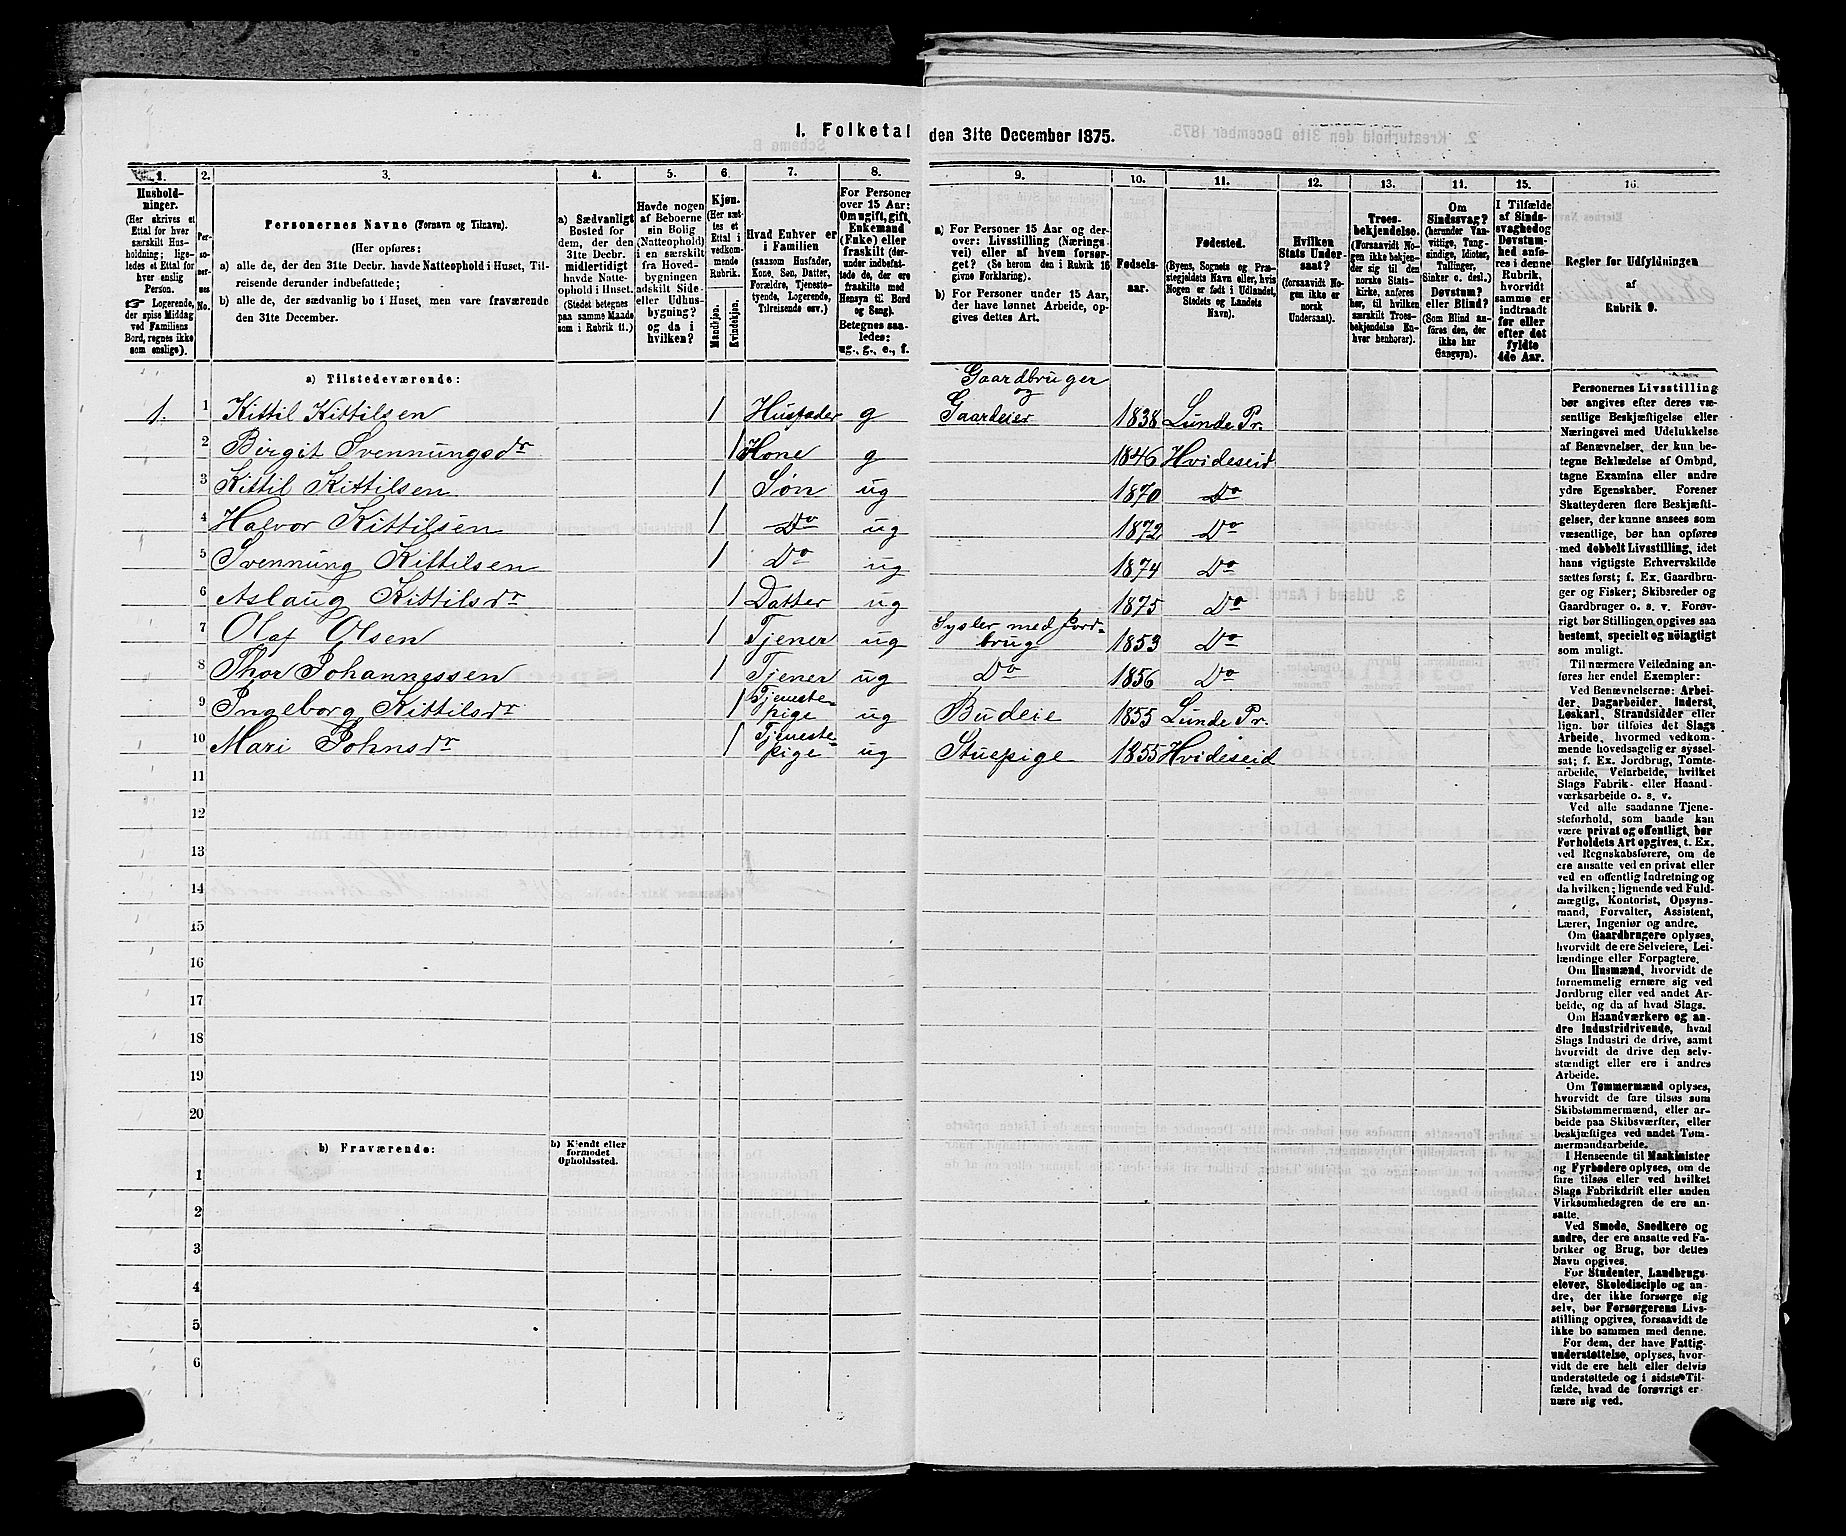 1. Folketal den 31te December 1875.
1. 2. 3. 4. 5. 6. 7. 8. 9. 10. 11. 12. 13. 14. 15. 16.
Husholdninger.
(Her skrives et
Ettal for hver
særskilt Hus-
holdning; lige-
ledes et Ettal for
hver enslig
Person.
☞ Logerende,
der spise Middag
ved Familiens
Bord, regnes ikke
som enslige).
Per-
soner-
nes
No.
Personernes Navne (Fornavn og Tilnavn).
(Her opføres:
a) alle de, der den 31te Decbr. havde Natteophold i Huset, Til-
reisende derunder indbefattede;
b) alle de, der sædvanlig bo i Huset, men vare fraværende
den 31te December.
a) Sædvanligt
Bosted for
dem, der den
31te Decbr.
midlertidigt
havde Natte-
ophold i Huset.
(Stedet betegnes
paa samme Maade
som i Rubrik 11.)
Havde nogen
af Beboerne
sin Bolig
(Natteophold)
i en særskilt
fra Hoved-
bygningen
adskilt Side-
eller Udhus-
bygning?
og da i
hvilken?
Kjøn.
(Her sæt-
tes et
Ettal i
vedkom-
mende
Rubrik.
Mandkjøn.
Kvindekjøn.
Hvad Enhver er
i Familien
(saasom Husfader,
Kone, Søn, Datter,
Forældre, Tjeneste-
tyende, Logerende,
Tilreisende osv.)
For Personer
over 15 Aar:
Om ugift, gift,
Enkemand
(Enke) eller
fraskilt (der-
under indbefat-
tede de, der ere
fraskilte med
Hensyn til Bord
og Seng).
Betegnes saa-
ledes:
ug., g., e., f.
a) For Personer 15 Aar og der-
over: Livsstilling (Nærings-
vei) eller af hvem forsør-
get? (Se herom den i Rubrik 16
givne Forklaring).
b) For Personer under 15 Aar,
der have lønnet Arbeide, op-
gives dettes Art.
Fødsels-
aar.
Fødested.
(Byens, Sognets og Præ-
stegjeldets Navn eller, hvis
Nogen er født i Udlandet,
Stedets og Landets
Navn).
Hvilken
Stats Under-
saat?
(forsaavidt No-
gen ikke er
norsk
Undersaat).
Troes-
bekjendelse.
(Forsaavidt No-
gen ikke bekjen-
der sig til den
norske Stats-
kirke, anføres
her, til hvilken
særskilt Troes-
bekjendelse En-
hver henhører).
Om
Sindssvag?
(herunder Van-
vittige, Tung-
sindige, Idioter,
Tullinger,
Sinker o. desl.)
Døvstum?
eller Blind?
(Som Blind an-
føres den, der
ikke har
Gangsyn).
I Tilfælde
af Sinds-
svaghed og
Døvstum-
hed anfø-
res i denne
Rubrik,
hvorvidt
samme er
indtraadt
før eller
efter det
fyldte
4de Aar.
Regler for Udfyldningen
af
Rubrik 9.
a) Tilstedeværende:
1. 1 Kittil Kittilsen 1 Husfader g Gaardbruger og Gaardeier 1838 Lunde Pr.
2 Birgit Svennungsdr 1 Kone g 1846 Hvideseid
3 Kittil Kittilsen 1 Søn ug 1870 Do
4 Halvor Kittilsen 1 Do ug 1872 Do
5 Svennung Kittilsen 1 Do ug 1874 Do
6 Aslaug Kittilsdr 1 Datter ug 1875 Do
7 Olaf Olsen 1 Tjener ug Sysler med Jord-brug 1853 Do
8 Thor Johannessen 1 Tjener ug Do 1856 Do
9 Ingeborg Kittilsdr 1 Tjeneste-pige ug Budeie 1855 Lunde Pr.
10 Mari Johnsdr 1 Tjeneste-pige ug Stuepige 1855 Hvideseid
11
12
13
14
15
16
17
18
19
20
b) Fraværende:
b) Kjendt eller
formodet
Opholdssted.
1
2
3
4
5
6
Personernes Livsstilling
bør angives efter deres væ-
sentlige Beskjæftigelse eller
Næringsvei med Udelukkelse
af Benævnelser, der kun be-
tegne Beklædelse af Ombud,
tagne Examina eller andre
ydre Egenskaber. Forener
Skatteyderen flere Beskjæfti-
gelser, der kunne ansees som
væsentlige, bør han opføres
med dobbelt Livsstilling, idet
hans vigtigste Erhvervskilde
sættes først; f. Ex. Gaardbru-
ger og Fisker; Skibsreder og
Gaardbruger o. s. v. Forøv-
rigt bør Stillingen opgives saa
bestemt, specielt og nøiagtigt
som muligt.
Til nærmere Veiledning an-
føres her endel Exempler:
Ved Benævnelserne: Arbei-
der, Dagarbeider, Inderst,
Løskarl, Strandsidder eller
lign. bør tilføies det Slags
Arbeide, hvormed vedkom-
mende hovedsagelig er syssel-
sat; f. Ex. Jordbrug, Tomte-
arbeide, Veiarbeide, hvilket
Slags Fabrik- eller Haand-
værksarbeide o. s. v.
Ved alle saadanne Tjene-
steforhold, som baade kan
være privat og offentligt, bør
Forholdets Art opgives, t. Ex.
ved Regnskabsførere, om de
ere ansatte ved en privat eller
ved en offentlig Indretning og
da hvilken; lignende ved Fuld-
mægtig, Kontorist, Opsyns-
mand, Forvalter, Assistent,
Lærer, Ingeniør og andre.
Om Gaardbrugere oplyses,
hvorvidt de ere Selveiere, Lei-
lændinge eller Forpagtere.
Om Husmænd, hvorvidt de
fornemmelig ernære sig ved
Jordbrug eller ved andet Ar-
beide, og da af hvad Slags.
Om Haandværkere og an-
dre Industridrivende, hvad
Slags Industri de drive, samt
hvorvidt de drive den selv-
stændigt eller ere i andres
Arbeide.
Om Tømmermænd oplyses,
hvorvidt de fare tilsøs som
Skibstømmermænd, eller ar-
beide paa Skibsværfter, eller
beskjæftiges ved andet Tøm-
mermandsarbeide.
I Henseende til Maskinister
og Fyrbødere oplyses, om de
fare tilsøs eller ved hvilket
Slags Fabrikdrift eller anden
Virksomhedsgren de ere an-
satte.
Ved Smede, Snedkere og
andre, der ere ansatte ved Fa-
briker og Brug, bør dettes
Navn opgives.
For Studenter, Landbrugs-
elever, Skoledisciple og an-
dre, der ikke forsørge sig
selv, bør Forsørgerens Livs-
stilling opgives, forsaavidt de
ikke bo sammen med denne.
For dem, der have Fattig-
understøttelse, oplyses, hvor-
vidt de ere helt eller delvis
understøttede og i sidste Til-
fælde, hvad de forøvrigt er-
nære sig ved.